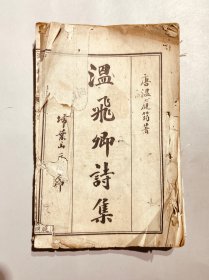 唐温庭筠著
溫飛卿詩集
埽葉山房